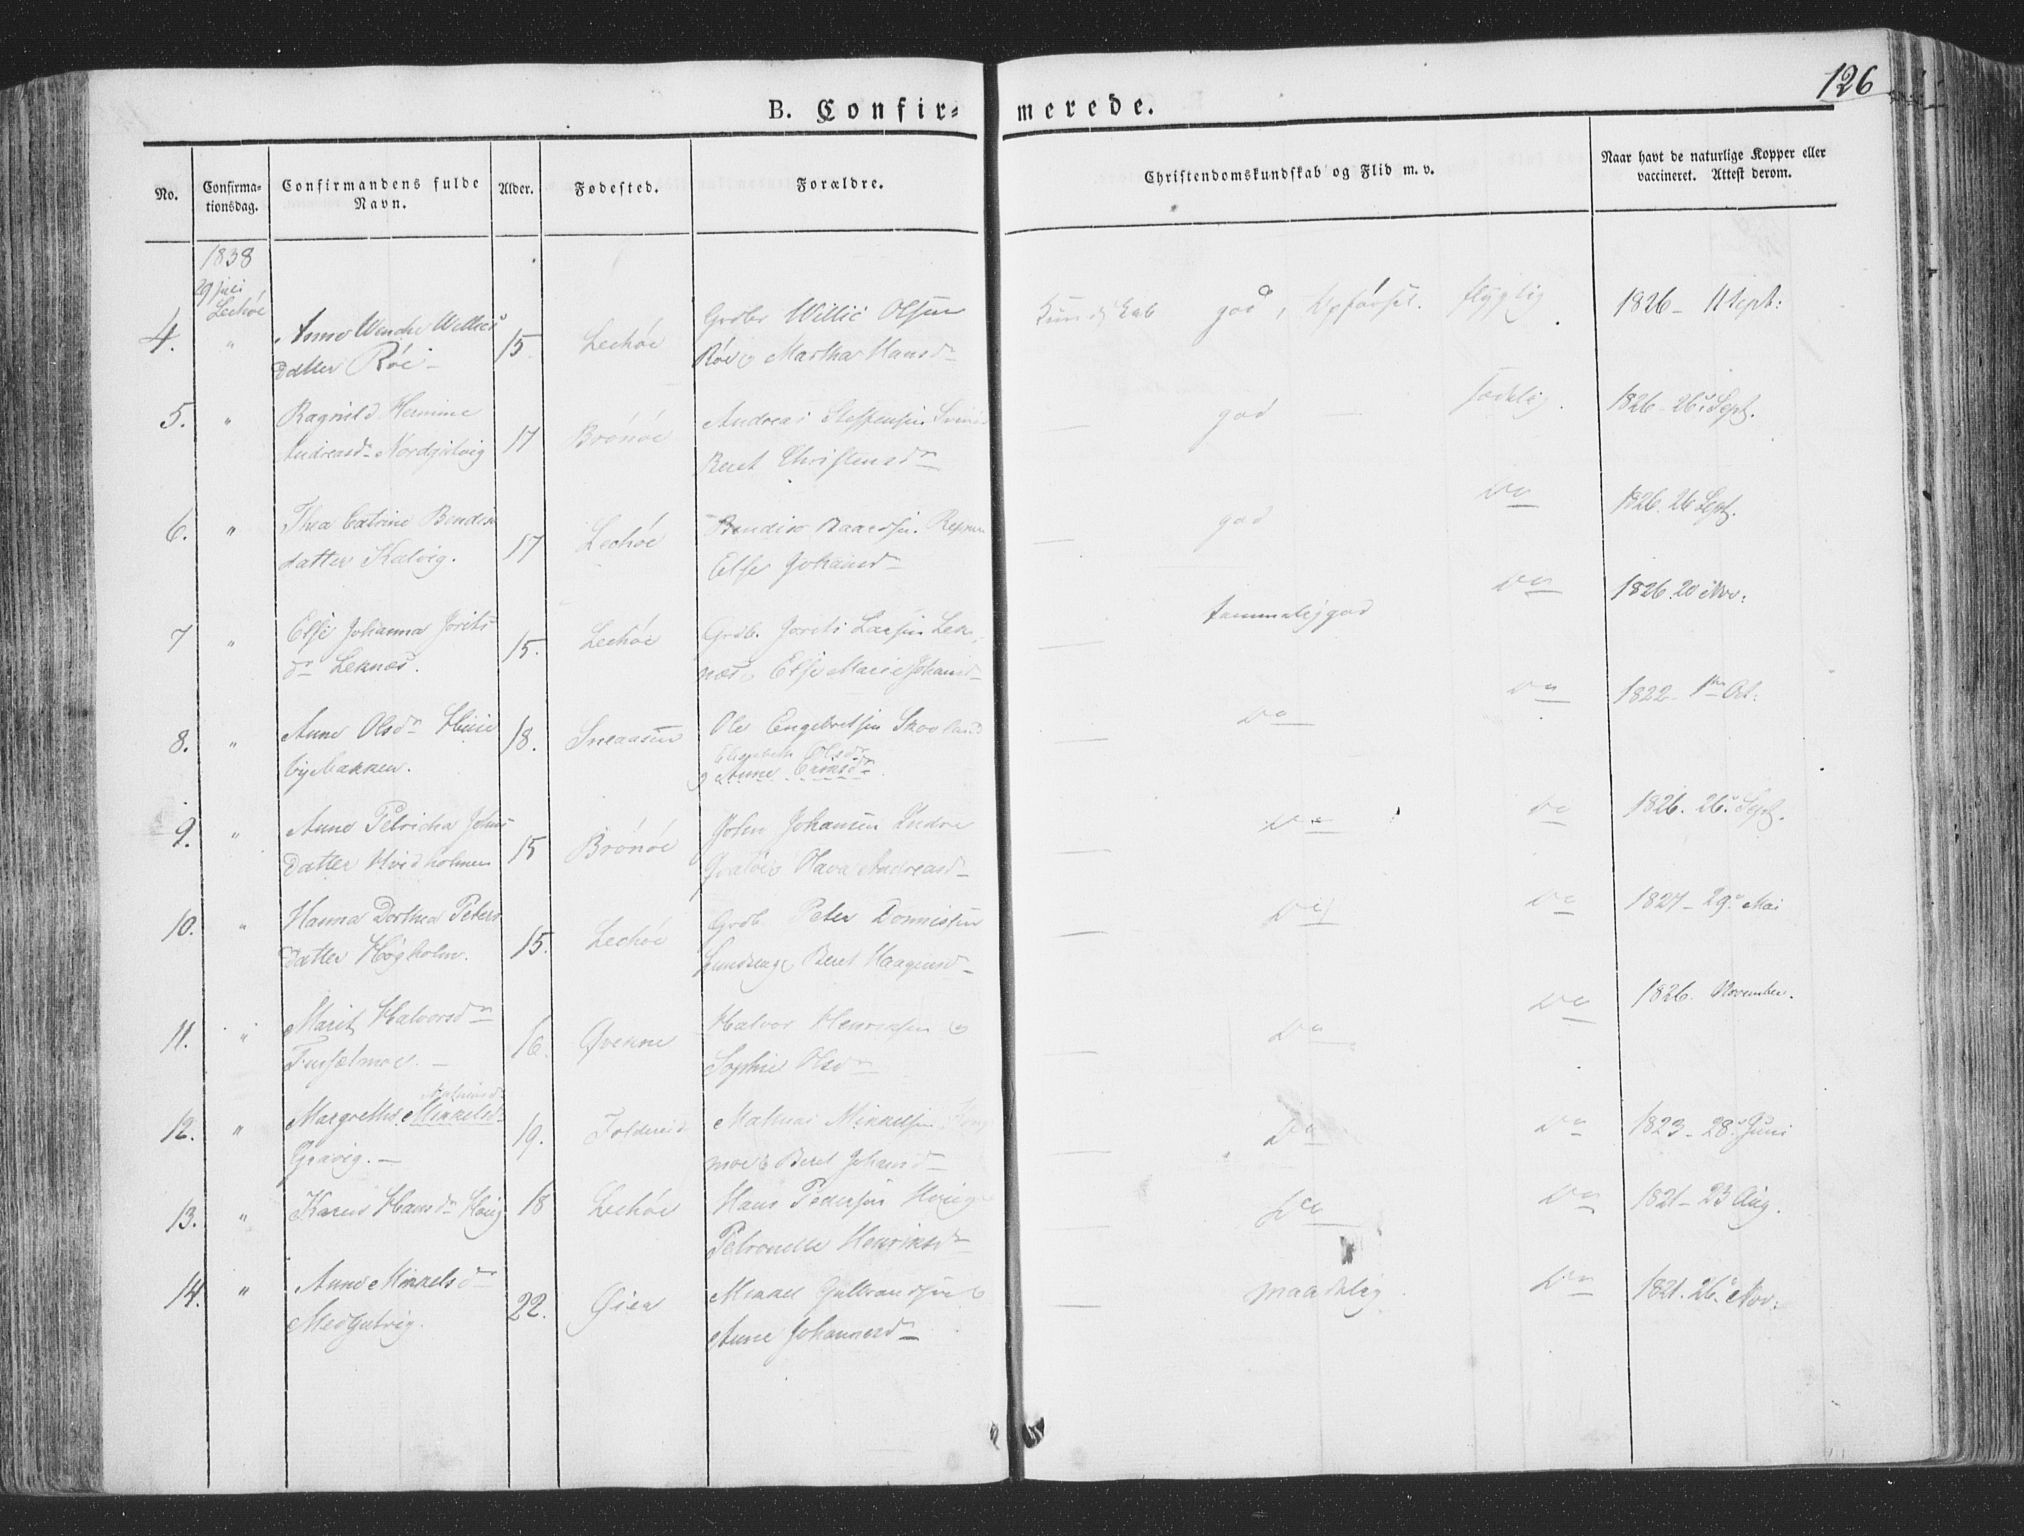 126
B. Confir- merede.
No.
Confirma-
tionsdag.
Confirmandens fulde
Navn.
Alder.
Fødested.
Forældre.
Christendomskundskab og Flid m. v.
Naar havt de naturlige Kopper eller
vaccineret. Attest derom.
1838
29 juli
Lechøe
4. " Anne Wenche Willies
datter Røe 15. Lechøe Grdbr Willie Olsen
Røe & Martha Hansdr
Kundskab god, Opførsel flygtig. 1826 – 11 Sept:
5. " Ragnild Hermine
Andreasdr 17 Brønøe Andreas Steffensen
Beret Christensdr
— god — 1826 – 26. Sept.
6. " Thea Catrine Bendix
datter Kalvig. 17 Lechøe Bendix Baardsen
Else Johansdr
— god Do 1826. 26 Sept.
7 " Else Johanna Jorits
dr Leknæs. 15. Lechøe Grdb. Jorits Larsen Lek-
næs & Else Marie Johansdr
— temmelig god Do 1826. 20 Nov:
8. " Anne Olsdr
18. Sneaasen Ole Engebretsen Skovland
Elisabeth Olsdr
& Anne Eriksdr
— Do Do 1822 – 1ste Oct:
9. " Anne Petricha Johns
datter Hvidholmen 15 Brønøe John Johansen Indre
& Olava Andreasdr
Do Do 1826. 26. Sept.
10. " Hanna Dorthea Peters
datter Høgholm. 15. Lechøe Grdb. Peter Donnissen
& Beret Haagensdr
— Do Do 1827 – 29. Mai
11. " Marit Halvorsdr
16. Halvor Henriksen &
Sophie Olsdr
— Do Do 1826. November.
12. " Margrethe Mikkelsdr
Gravig. — 19. Foldereid Mathias Mikkelsen
moe & Beret Johansdr
— Do Do 1823 – 28. Juni
13. " Karen Hansdr Høig 18 Lechøe Hans Pedersen Høig
Petronelle Henriksdr
Do Do 1821 – 23 Aug.
14. " Anne Mikkelsdr
22. Øien Mikkel Gulbrandsen &
Anne Johannesdr
— maadelig. Do 1821. 26. Nov: